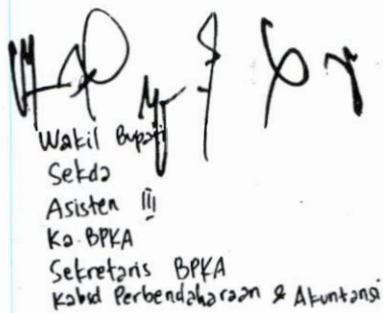 Wakil Bupati
Sekda
Asisten III
Ka. BPKA
Sekretaris BPKA
Kabid Perbendaharaan & Akuntansi